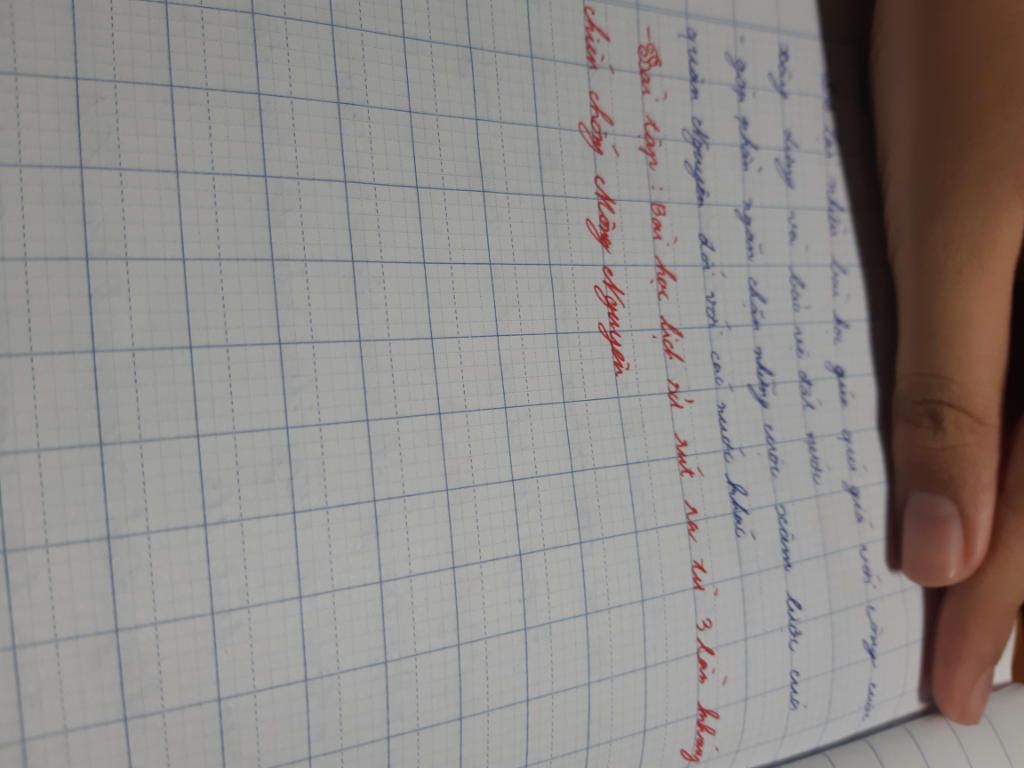 nhiều bài học quý giá với công cuộc
xây dựng và bảo vệ đất nước
- góp phần ngăn chặn những cuộc xâm lược của
quân Nguyên đối với các nước khác
- Bài tập: Bài học lịch sử rút ra từ 3 lần kháng
chiến chống Mông Nguyên